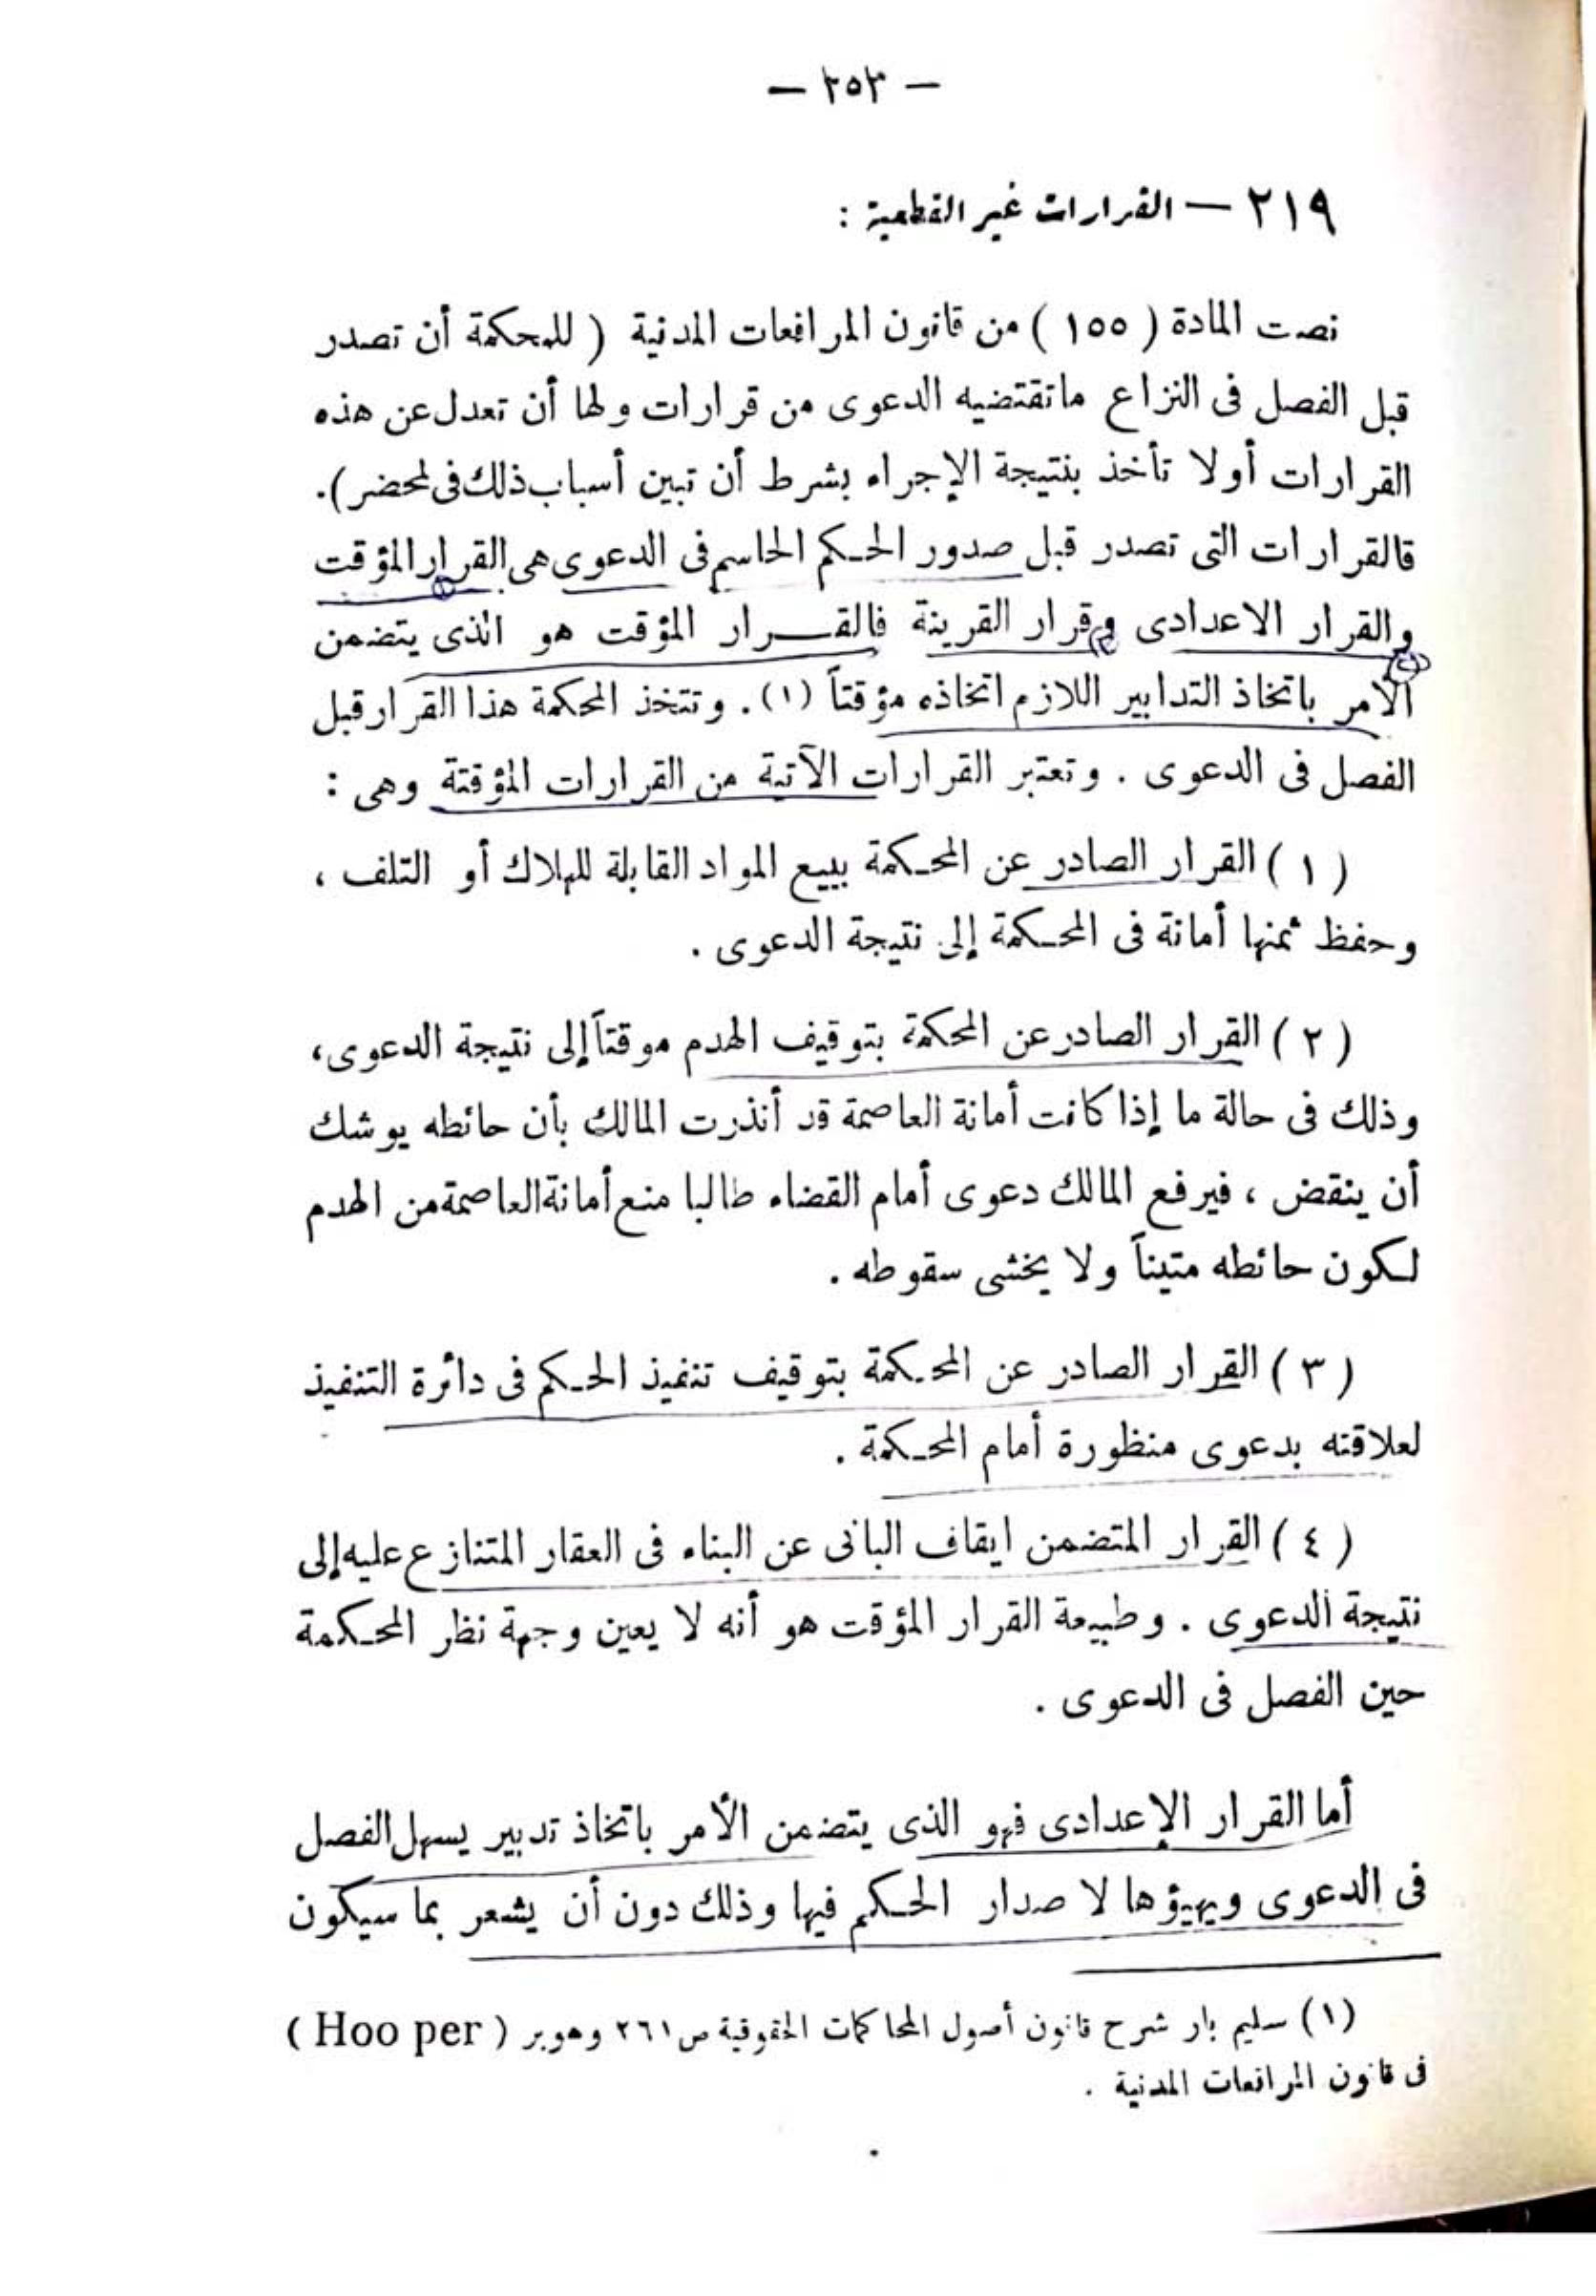 — ٢٥٣ —
٢١٩ — القرارات غير القطعية :
نصت المادة ( ١٥٥ ) من قانون المرافعات المدنية ( للمحكمة أن تصدر
قبل الفصل فى النزاع ماتقتضيه الدعوى من قرارات ولها أن تعدل عن هذه
القرارات أولا تأخذ بنتيجة الإجراء بشرط أن تبين أسباب ذلك فى لمحضر ).
فالقرارات التى تصدر قبل صدور الحكم الحاسم فى الدعوى هى القرار المؤقت
والقرار الاعدادى وقرار القرينة فالقرار المؤقت هو الذى يتضمن
الأمر باتخاذ التدابير اللازم اتخاذه مؤقتاً (١) . وتتخذ المحكمة هذا القرار قبل
الفصل فى الدعوى . وتعتبر القرارات الآتية من القرارات المؤقتة وهى :
( ١ ) القرار الصادر عن المحكمة ببيع المواد القابلة للهلاك أو التلف ،
وحفظ ثمنها أمانة فى المحكمة إلى نتيجة الدعوى .
( ٢ ) القرار الصادر عن المحكمة بتوقيف الهدم موقتاً إلى نتيجة الدعوى ،
وذلك فى حالة ما إذا كانت أمانة العاصمة قد أنذرت المالك بأن حائطه يوشك
أن ينقض ، فيرفع المالك دعوى أمام القضاء طالبا منع أمانة العاصمة من الهدم
لكون حائطه متيناً ولا يخشى سقوطه .
( ٣ ) القرار الصادر عن المحكمة بتوقيف تنفيذ الحكم فى دائرة التنفيذ
لعلاقته بدعوى منظورة أمام المحكمة .
( ٤ ) القرار المتضمن ايقاف البانى عن البناء فى العقار المتنازع عليه إلى
نتيجة الدعوى . وطبيعة القرار المؤقت هو أنه لا يعين وجهة نظر المحكمة
حين الفصل فى الدعوى .
أما القرار الإعدادى فهو الذى يتضمن الأمر باتخاذ تدبير يسهل الفصل
فى الدعوى ويهيؤها لا صدار الحكم فيها وذلك دون أن يشعر بما سيكون
(١) سليم باز شرح قانون أصول المحاكمات الحقوقية ص ٢٦١ وهوبر ( Hoo per )
فى قانون المرافعات المدنية .